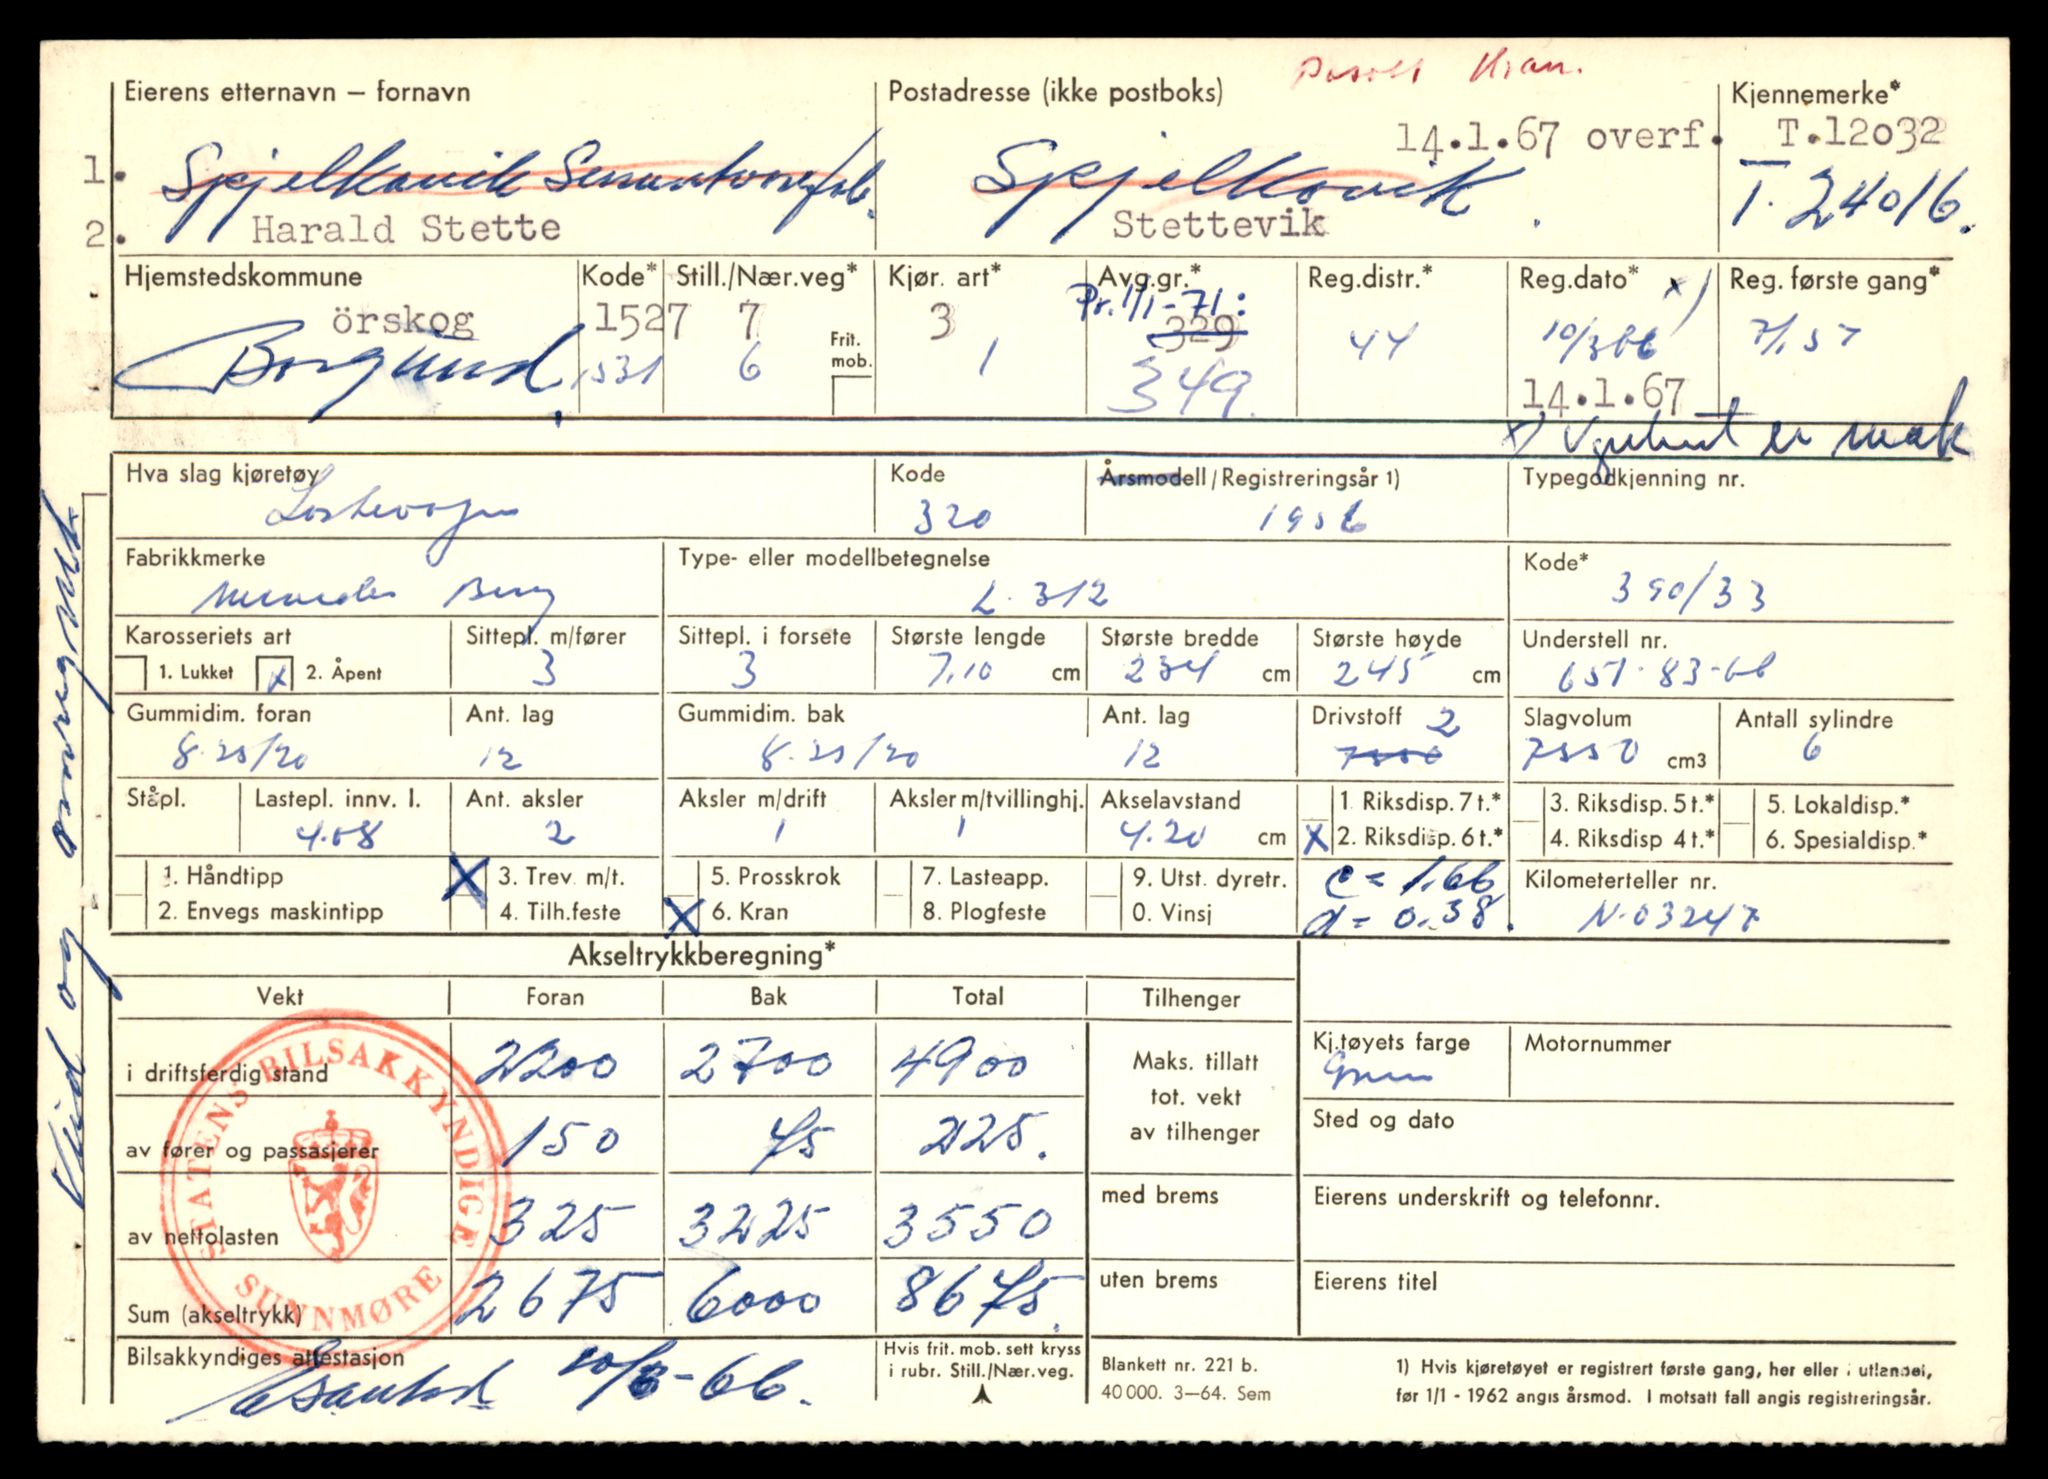 Pasolt Kran.
Eierens etternavn – fornavn Postadresse (ikke postboks) Kjennemerke*
14.1.67 overf. T.12032
1. Spjelkavik Sementvarefab. Spjelkavik. T. 24016.
2. Harald Stette Stettevik
Hjemstedskommune Kode* Still./Nær.veg* Kjør. art* Avg.gr.* Reg.distr.* Reg.dato* x) Reg. første gang*
Pr. 1/1-71:
örskog 1527 7 Frit. mob. 3 329
Borgund. 1531 6 1 349. 44 10/3 66 7/1 57
14.1.67
x) Vognkort er mak
Hva slag kjøretøy Kode Årsmodell/Registreringsår 1) Typegodkjenning nr.
Lastevogn 320 1956
Fabrikkmerke Type- eller modellbetegnelse Kode*
Mercedes Benz L. 312 390/33
Karosseriets art Sittepl. m/fører Sittepl. i forsete Største lengde Største bredde Største høyde Understell nr.
1. Lukket x 2. Åpent 3 3 7,10 cm 234 cm 245 cm 651-83-66
Gummidim. foran Ant. lag Gummidim. bak Ant. lag Drivstoff 2 Slagvolum Antall sylindre
8.25/20 12 8.25/20 12 7550 cm3 6
Ståpl. Lastepl. innv. l. Ant. aksler Aksler m/drift Aksler m/tvillinghj. Akselavstand 1. Riksdisp. 7 t.* 3. Riksdisp. 5 t.* 5. Lokaldisp.*
4.08 2 1 1 4.20 cm X 2. Riksdisp. 6 t.* 4. Riksdisp 4 t.* 6. Spesialdisp.*
1. Håndtipp X 3. Trev. m/t. 5. Prosskrok 7. Lasteapp. 9. Utst. dyretr. c = 1.66 Kilometerteller nr.
2. Envegs maskintipp 4. Tilh.feste X 6. Kran 8. Plogfeste 0. Vinsj d = 0.38. N.03247
Akseltrykkberegning*
Vekt Foran Bak Total Tilhenger
i driftsferdig stand 2200 2700 4900 Maks. tillatt tot. vekt av tilhenger Kj.tøyets farge Motornummer
Grønn
av fører og passasjerer 150 75 225. Sted og dato
av nettolasten 325 3225 3550 med brems Eierens underskrift og telefonnr.
Sum (akseltrykk) 2675 6000 8675 uten brems Eierens titel
Bilsakkyndiges attestasjon 10/3-66. Hvis frit. mob. sett kryss i rubr. Still./Nær.veg.
Blankett nr. 221 b.
40 000. 3–64. Sem
1) Hvis kjøretøyet er registrert første gang, her eller i utlandet,
før 1/1 - 1962 angis årsmod. I motsatt fall angis registreringsår.
STATENS BILSAKKYNDIGE
SUNNMØRE
og omregistr.